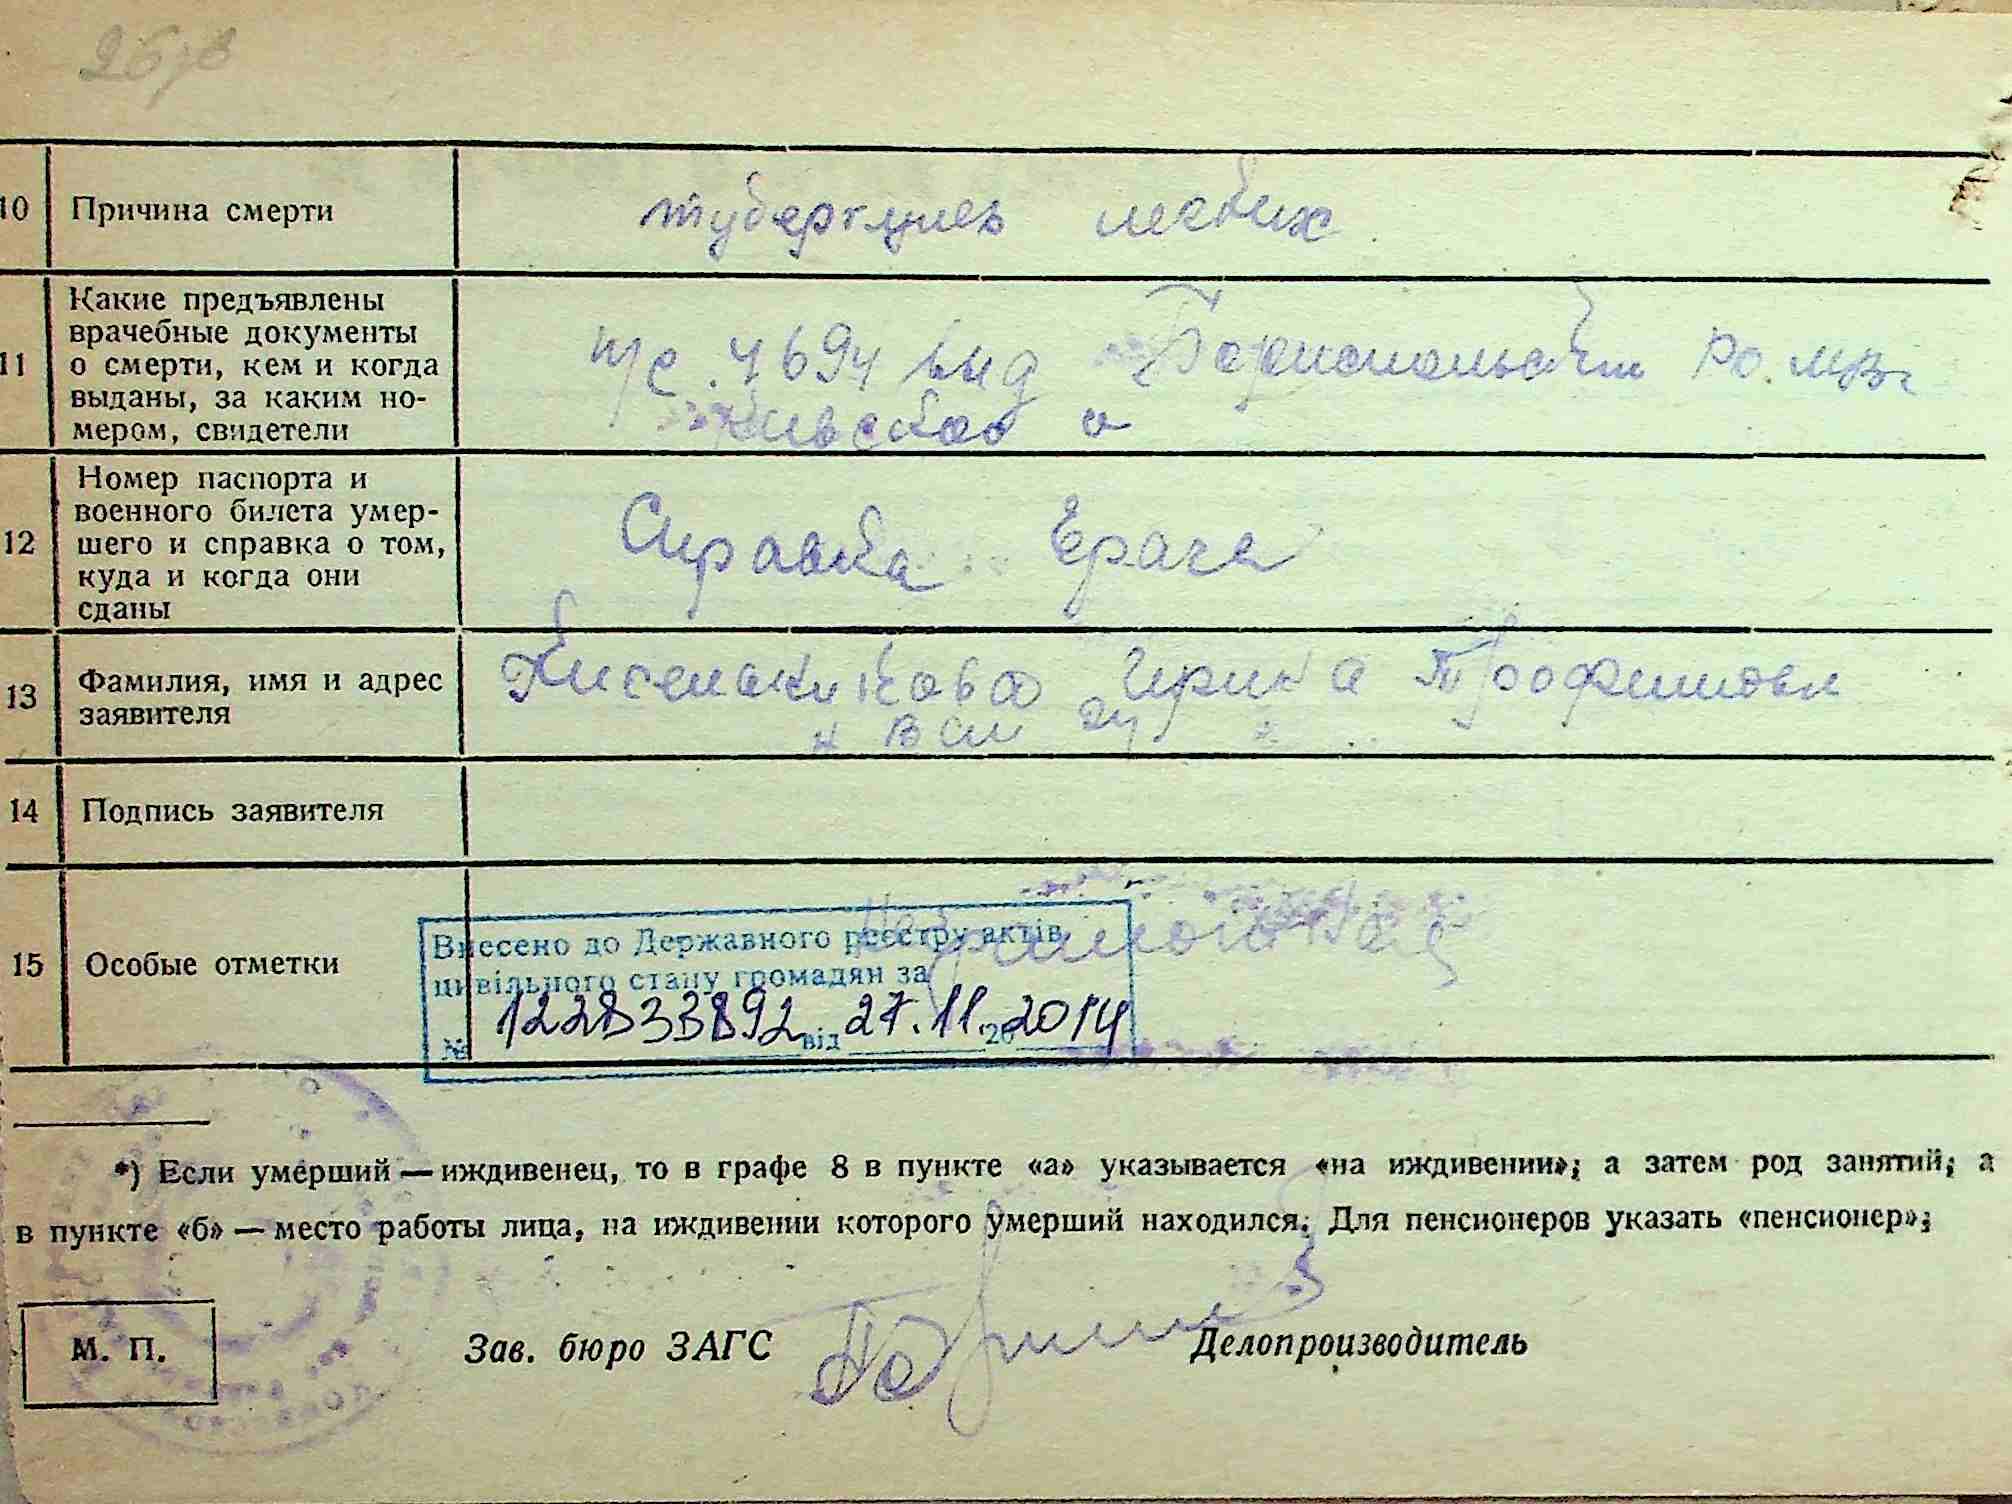 10 Причина смерти туберкулез легких
11 Какие предъявлены
врачебные документы
о смерти, кем и когда
выданы, за каким но-
мером, свидетели
выд Бориспольским РО. МВД
Киевской о
12 Номер паспорта и
военного билета умер-
шего и справка о том,
куда и когда они
сданы
Справка Врача
13 Фамилия, имя и адрес
заявителя
Ирина Трофимовна
14 Подпись заявителя
15 Особые отметки
Внесено до Державного реєстру актів
цивільного стану громадян за
№ 122833892 від 27.11.2014
*) Если умерший — иждивенец, то в графе 8 в пункте «а» указывается «на иждивении»; а затем род занятий; а
в пункте «б» — место работы лица, на иждивении которого умерший находился. Для пенсионеров указать «пенсионер»;
М. П. Зав. бюро ЗАГС Делопроизводитель